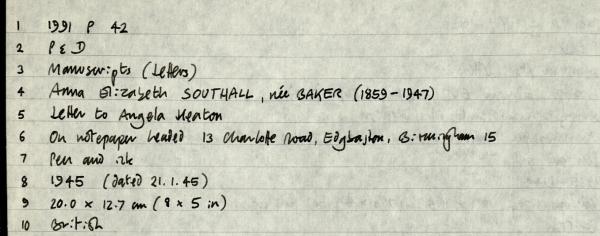 1 1991 P 42
2 P & D
3 Manuscripts (Letters)
4 Anna Elizabeth SOUTHALL, née BAKER (1859-1947)
5 Letter to Angela Heaton
6 On notepaper headed 13 Charlotte Road, Edgbaston, Birmingham 15
7 Pen and ink
8 1945 (dated 21.1.45)
9 20.0 x 12.7 cm (8 x 5 in)
10 British